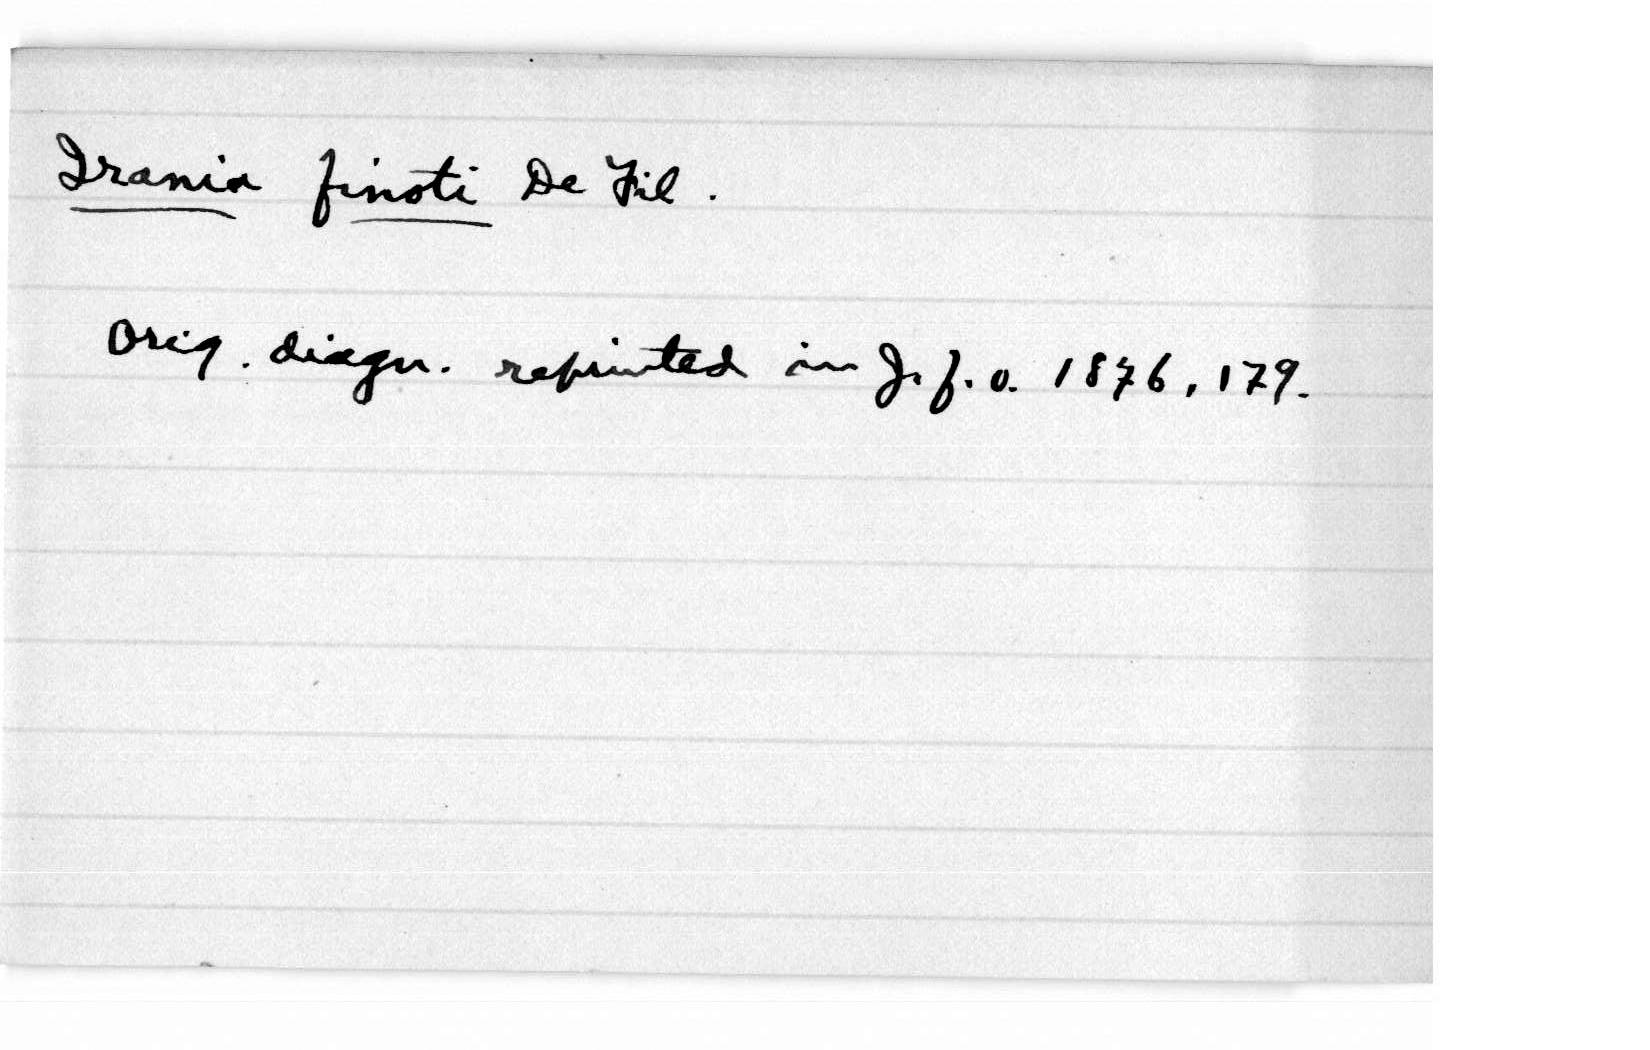 Irania finoti De Fil.
Orig. diagn. reprinted in J. f. O. 1876, 179.